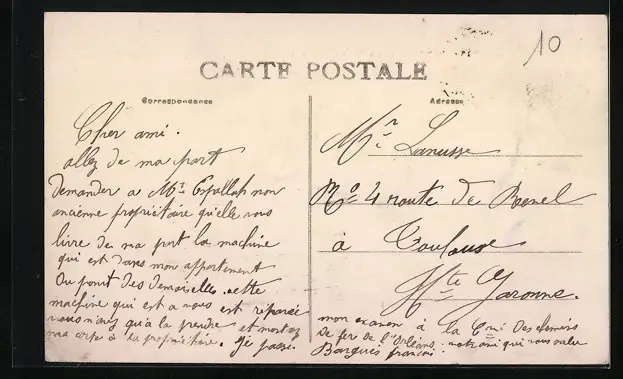 10
CARTE POSTALE
Correspondance
Adresse
Cher ami.
allez de ma part
demander a Mme non
ancienne propriétaire qu'elle vous
livre de ma part la machine
qui est dans mon appartement
Ou pont des demoiselles. cette
machine qui est a nous est réparée
vous n'avez qu'a la prendre et montez
ma carte à la propriétaire. je passe
Mr Lanusse
No 4 route de
à Toulouse
Hte Garonne.
mon examen à la Cnie Des chemins
de fere de l'Orléans. notre ami qui vous salue
Barguès francois.